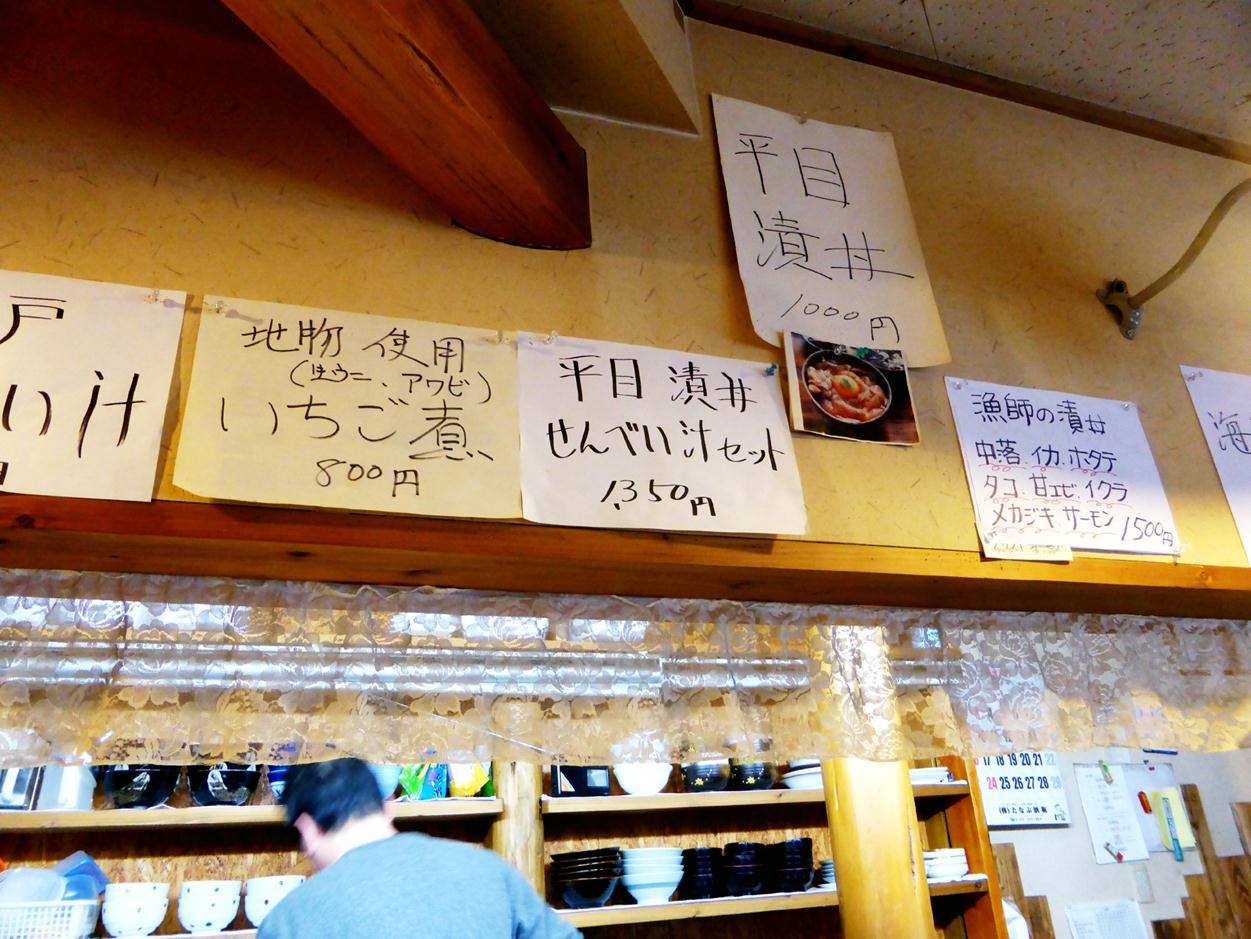 戸
い汁
地物 使用
(生ウニ、アワビ)
いちご煮
800円
平目 漬丼
せんべい汁セット
1,350円
平目
漬丼
1000円
漁師の漬丼
中落.イカ.ホタテ
タコ.甘エビ.イクラ
メカジキ.サーモン 1500円
海
17 18 19 20 21 22
24 25 26 27 28 29
(株)たなぶ酒販